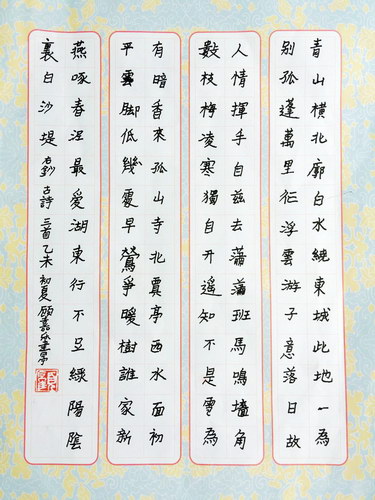 青山橫北廓白水繞東城此地一為
别孤蓬萬里征浮雲游子意落日故
人情揮手自兹去蕭蕭班馬鳴墻角
數枝梅凌寒獨自开遥知不是雪為
有暗香來孤山寺北賈亭西水面初
平雲脚低幾處早鶯爭暖樹誰家新
燕啄春泥最愛湖東行不足緑陽陰
裏白沙堤 右鈔古詩三首乙未初夏顧嘉書